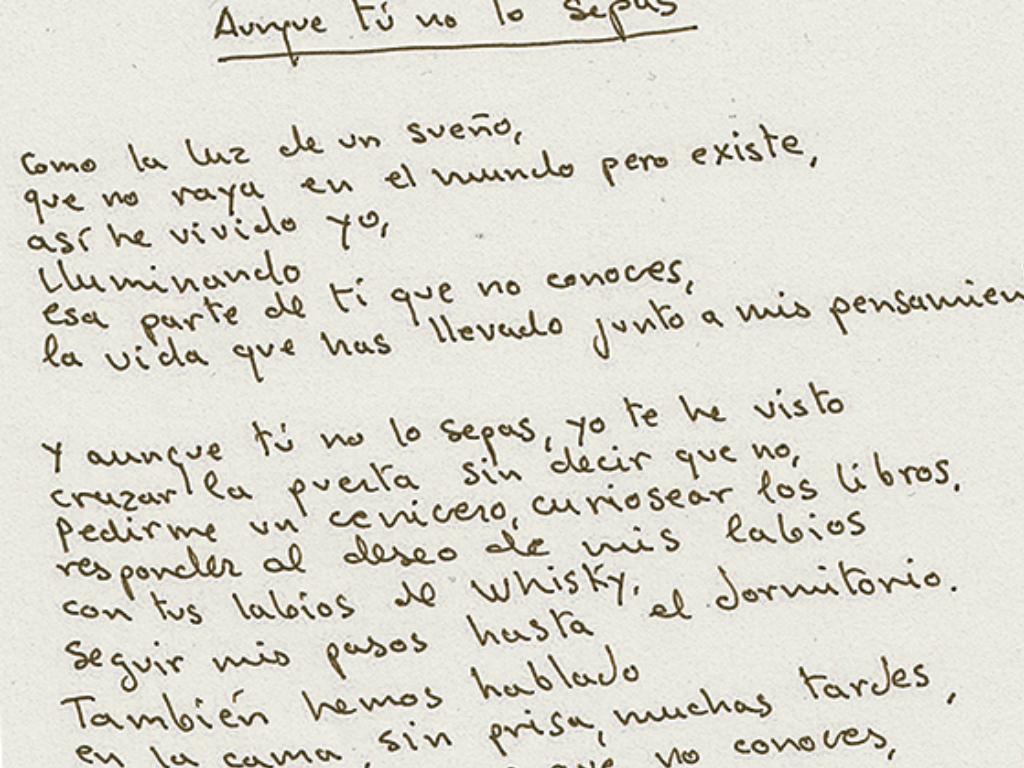 Aunque tú no lo sepas
Como la luz de un sueño,
que no raya en el mundo pero existe,
así he vivido yo,
Iluminando
esa parte de ti que no conoces,
la vida que has llevado junto a mis pensamien
Y aunque tú no lo sepas, yo te he visto
cruzar la puerta sin decir que no,
Pedirme un cenicero, curiosear los libros.
responder al deseo de mis labios
con tus labios de whisky,
seguir mis pasos hasta el dormitorio.
También hemos hablado
en la cama, sin prisa, muchas tardes,
que no conoces,